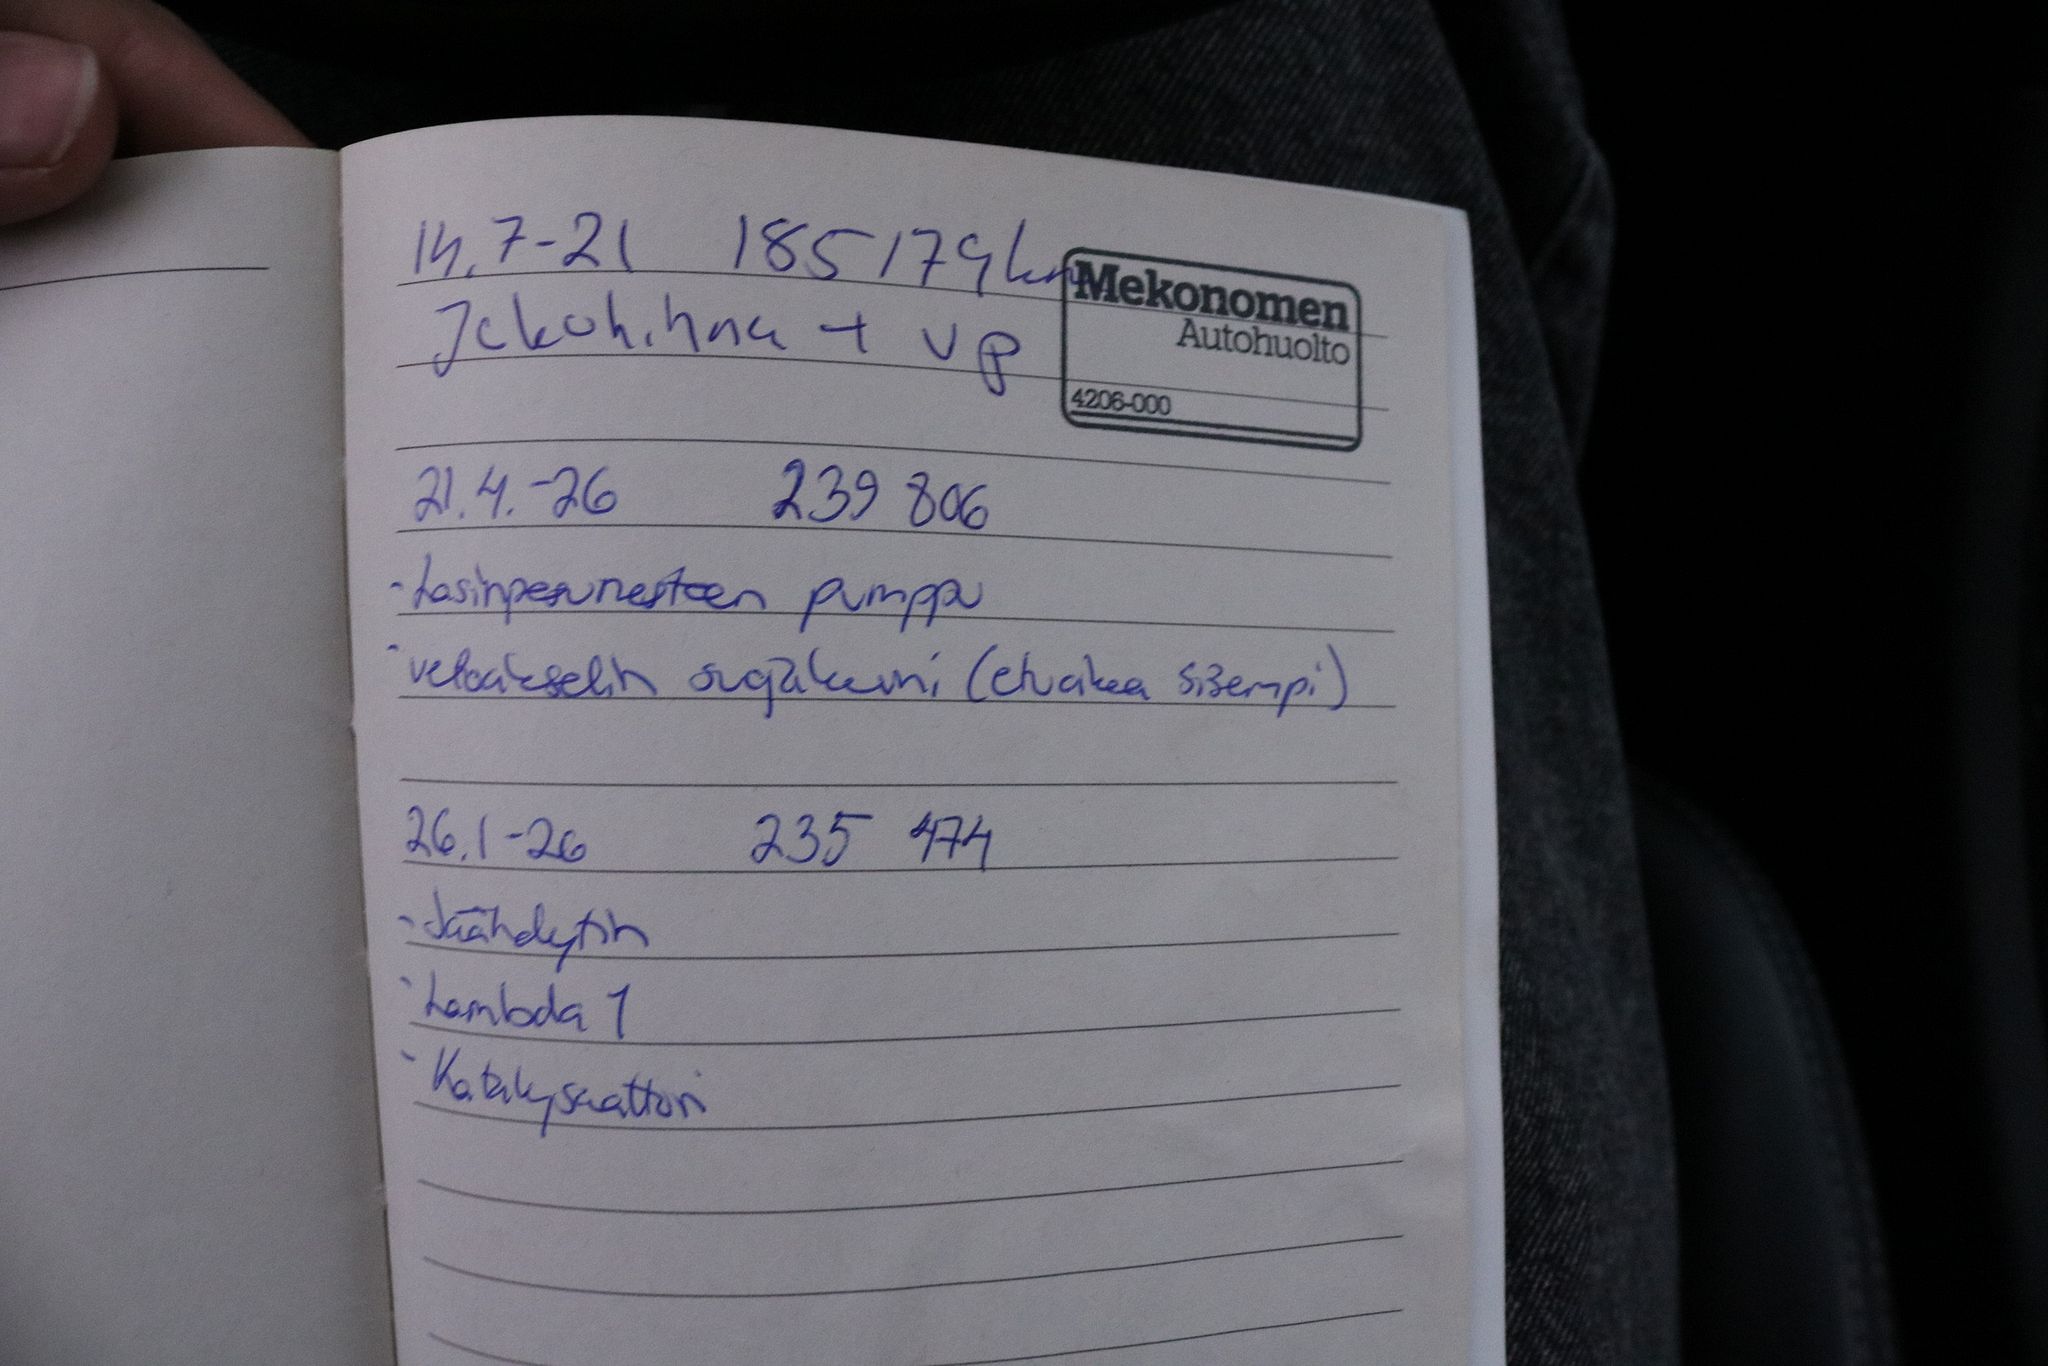 14.7-21 185179km
Jakohihna + vp
Mekonomen
Autohuolto
4206-000
21.4.-26 239 806
-Lasinpesunesteen pumppu
-vetoakselin suojakumi (etuakea sisempi)
26.1-26 235 474
-Jäähdytin
-Lambda 1
-Katalysaattori